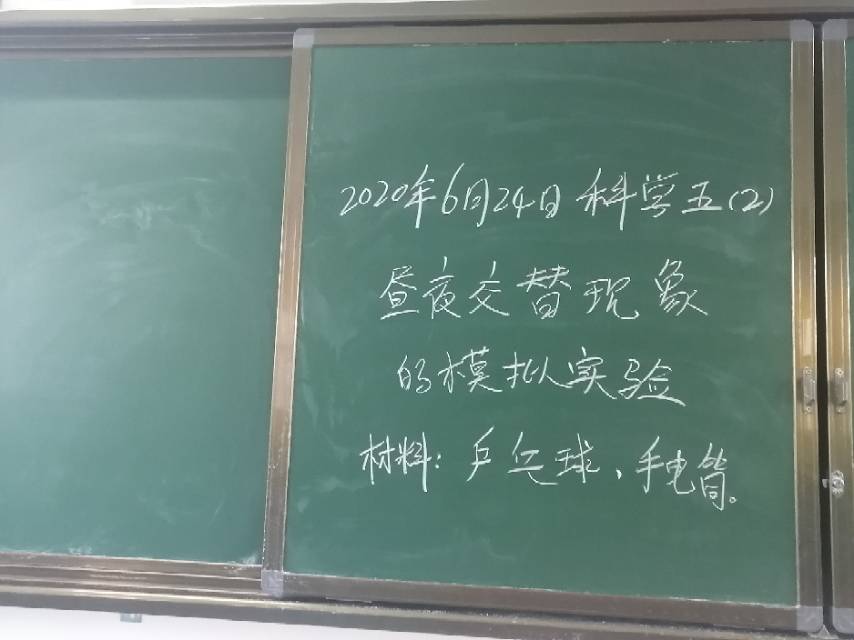 2020年6月24日 科学五(2)
昼夜交替现象
的模拟实验
材料：乒乓球、手电筒。